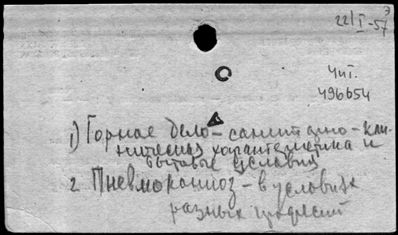 22/I-57 э
Чит.
496654
1) Горное дело - санитарно - кли-
ническая характеристика и
бытовые условия
2 Пневмокониоз - в условиях
разных профессий